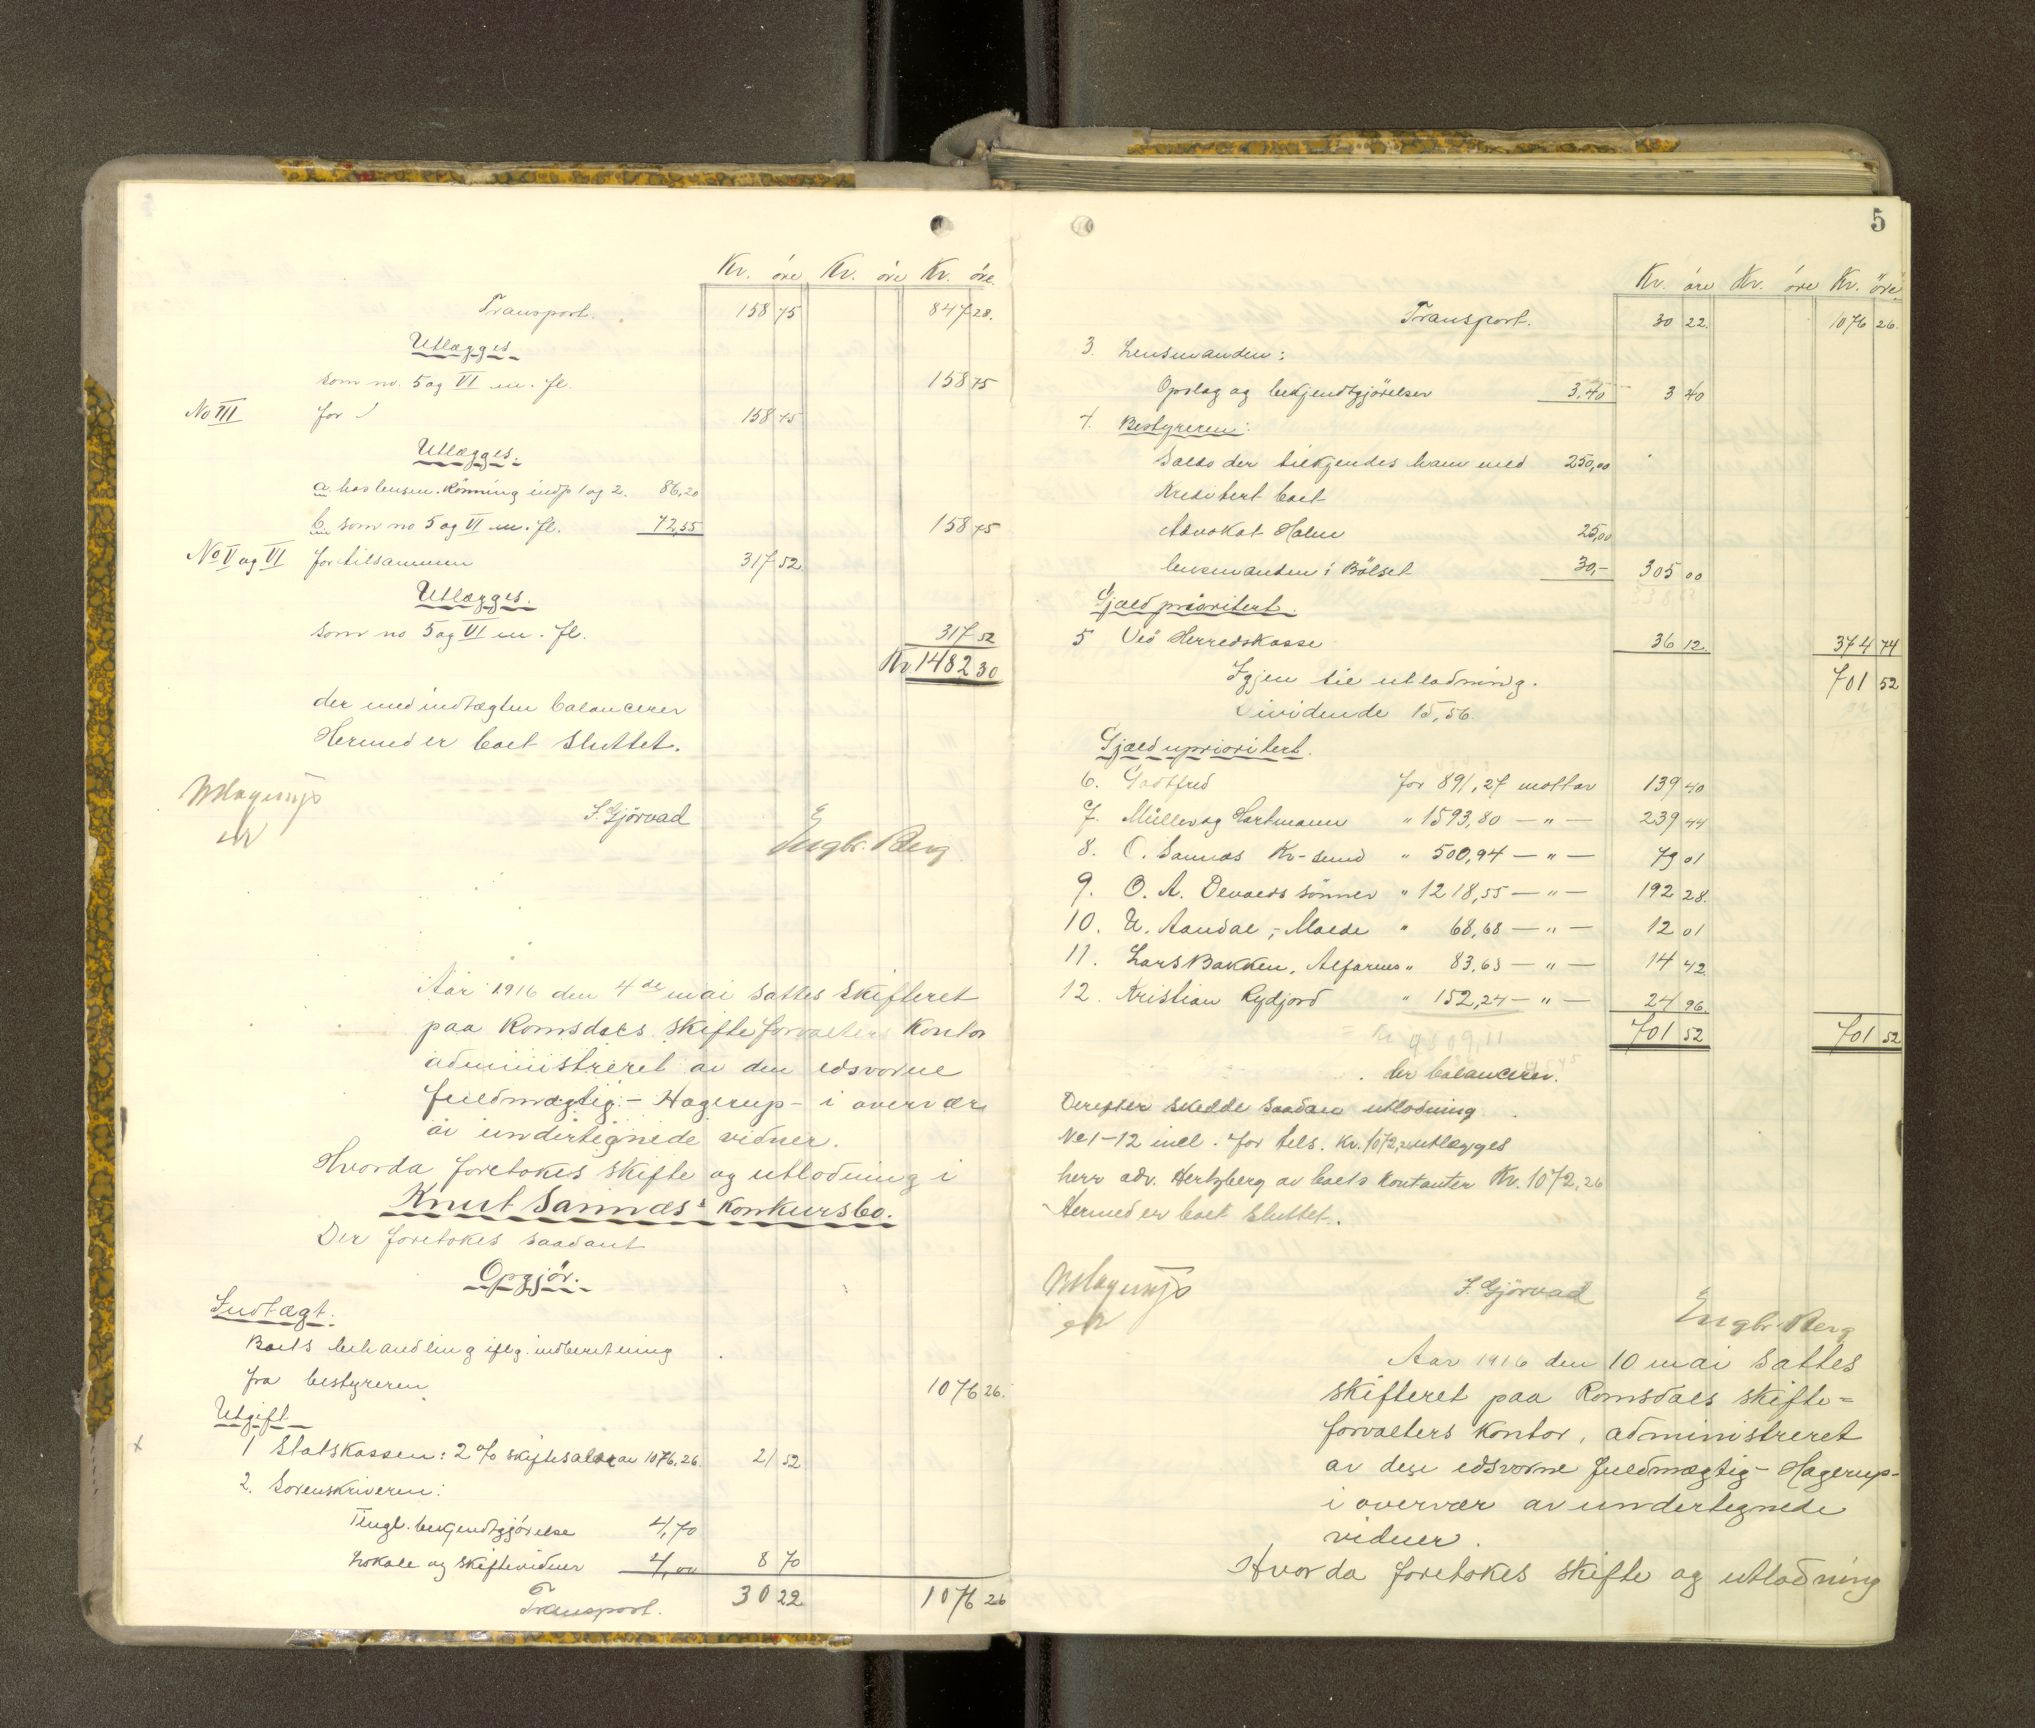 Kr. öre Kr. öre Kr. öre
Transport. 158 75 847 28.
Utlægges
som no. 5 og VI m. fl. 158 75
No III for 158 75
Utlægges.
a. hos lensm. Rönning indp 1 og 2. 86,20
b. som no 5 og VI m. fl. 72,55 158 75
No V og VI for tilsammen 317 52
Utlægges.
som no 5 og VI m. fl. 317 52
Kr 1482 30
der med indtægten balancerer
Hermed er boet sluttet.
S. Gjörvad
Engbr. Berg
Aar 1916 den 4de mai sattes skifteret
paa Romsdals skifteforvalters kontor
administreret av den edsvorne
fuldmægtig - Hagerup - i overvær
av undertegnede vidner.
Hvorda foretokes skifte og utlodning i
Knut Sannæs' konkursbo.
Der foretokes saadant
Opgjör.
Indtægt.
Boets behandling iflg. indberetning
fra bestyreren 1076 26.
Utgift
1 Statskassen: 2 % skiftesalær av 1076.26. 21 52
2. Sorenskriveren:
Tingl. bekjendtgjörelse 4,70
Lokale og skiftevidner 4,00 8 70
Transport. 30 22 1076 26
5
Kr. öre Kr. öre Kr. öre
Transport. 30 22. 1076 26.
3. Lensmanden:
Opslag og bekjendtgjörelser 3,40 3 40
4. Bestyreren:
Saldo der tilkjendes ham med 250,00
Kreditert boet
Advokat Holm 25,00
lensmanden i Bolset 30,- 305 00
Gjæld prioritert.
5 Veö Herredskasse 36 12. 374 74
Igjen til utlodning. 701 52
Dividende 15,56.
Gjæld uprioritert.
6. Godtfred for 891,27 mottar 139 40
7. Müller og Hartmann " 1593,80 — " — 239 44
8. O. Sannæs Kr-sund " 500,94 — " — 79 01
9. O. A. Devolds sönner " 1218,55 — " — 192 28.
10. U. Aandal, Molde " 68,68 — " — 12 01
11. Lars Bakken, Alfarnes " 83,63 — " — 14 42
12. Kristian Rydjord " 152,24 — " — 24 96.
4509,11
701 52 701 52
der balancerer.
Derefter skedde saadan utlodning
No 1-12 incl. for tils. kr. 1072,26 utlægges
herr adv. Hertzberg av boets kontanter Kr. 1072,26
Hermed er boet sluttet.
S. Gjörvad
Engbr. Berg
Aar 1916 den 10 mai sattes
skifteret paa Romsdals skifte=
forvalters kontor, administreret
av den edsvorne fuldmægtig - Hagerup -
i overvær av undertegnede
vidner.
Hvorda foretokes skifte og utlodning